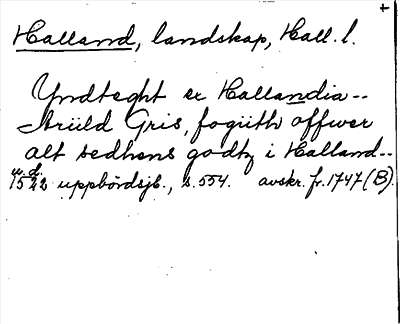 +
Halland, landskap, Hall. l.
Yndteght er Hallandia--
Arüld Gris, fogüth offwer
alt sedhens godtz i Halland--
u.d.
1522 uppbördsjb., s. 554. avskr. fr. 1747 (B).